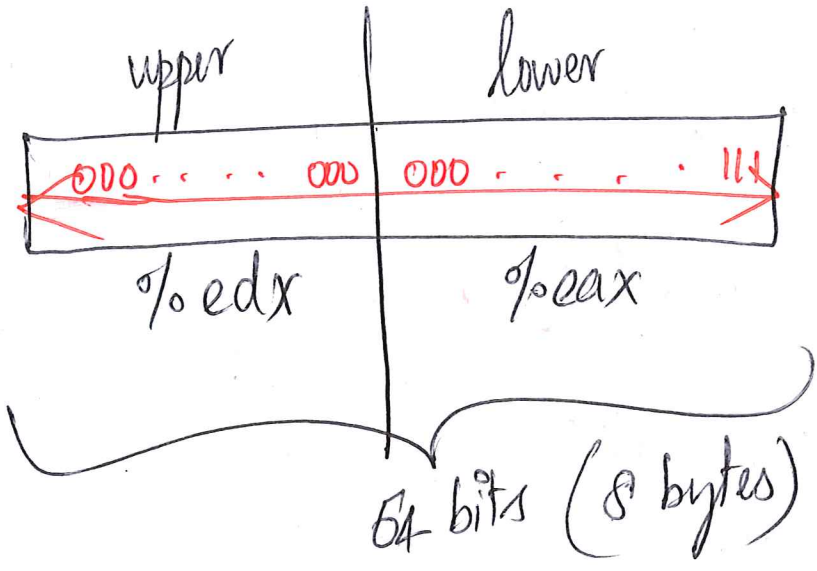 upper lower
000 . . . . 000 000 . . . . 111
%edx %eax
64 bits (8 bytes)